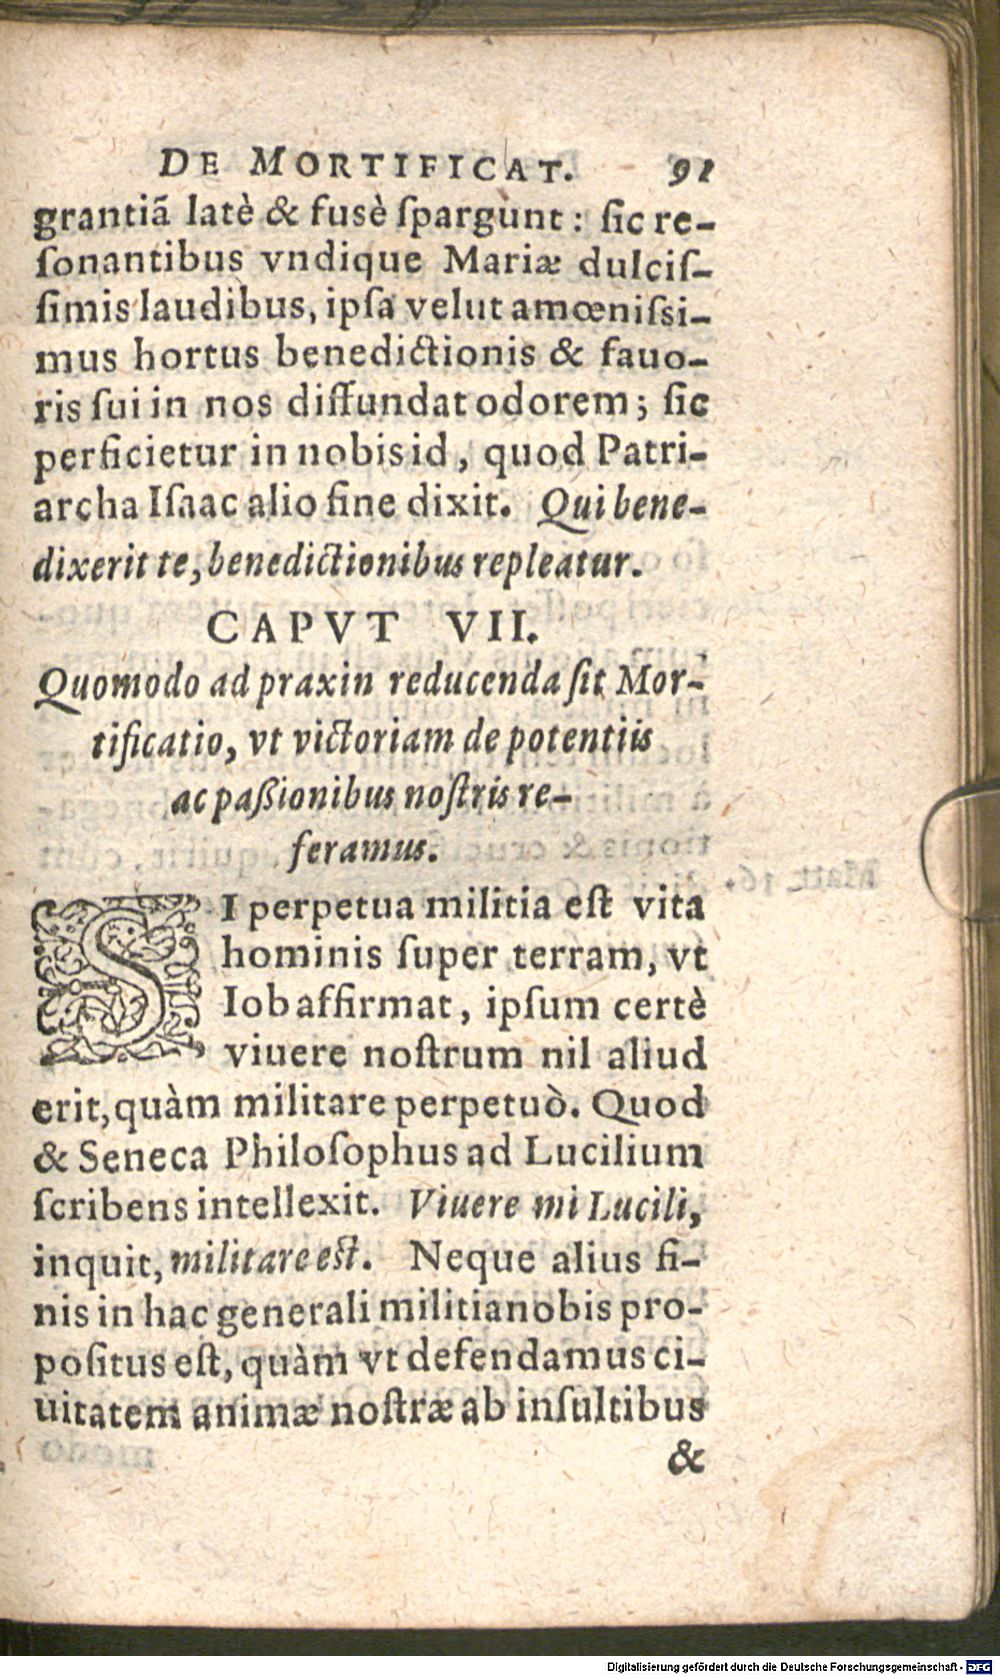 DE MORTIFICAT. 91
grantiã latè & fusè ſpargunt: ſic re-
ſonantibus vndique Mariæ dulciſ-
ſimis laudibus, ipſa velut amœniſsi-
mus hortus benedictionis & fauo-
ris ſui in nos diffundat odorem; ſic
perficietur in nobis id, quod Patri-
archa Iſaac alio fine dixit. Qui bene-
dixerit te, benedictionibus repleatur.
CAPVT VII.
Quomodo ad praxin reducenda ſit Mor-
tificatio, vt victoriam de potentiis
ac paßionibus noſtris re-
feramus.
SI perpetua militia eſt vita
hominis ſuper terram, vt
Iob affirmat, ipſum certè
viuere noſtrum nil aliud
erit, quàm militare perpetuò. Quod
& Seneca Philoſophus ad Lucilium
ſcribens intellexit. Viuere mi Lucili,
inquit, militare eſt. Neque alius fi-
nis in hac generali militia nobis pro-
poſitus eſt, quàm vt defendamus ci-
uitatem animæ noſtræ ab inſultibus
&
Digitalisierung gefördert durch die Deutsche Forschungsgemeinschaft - DFG